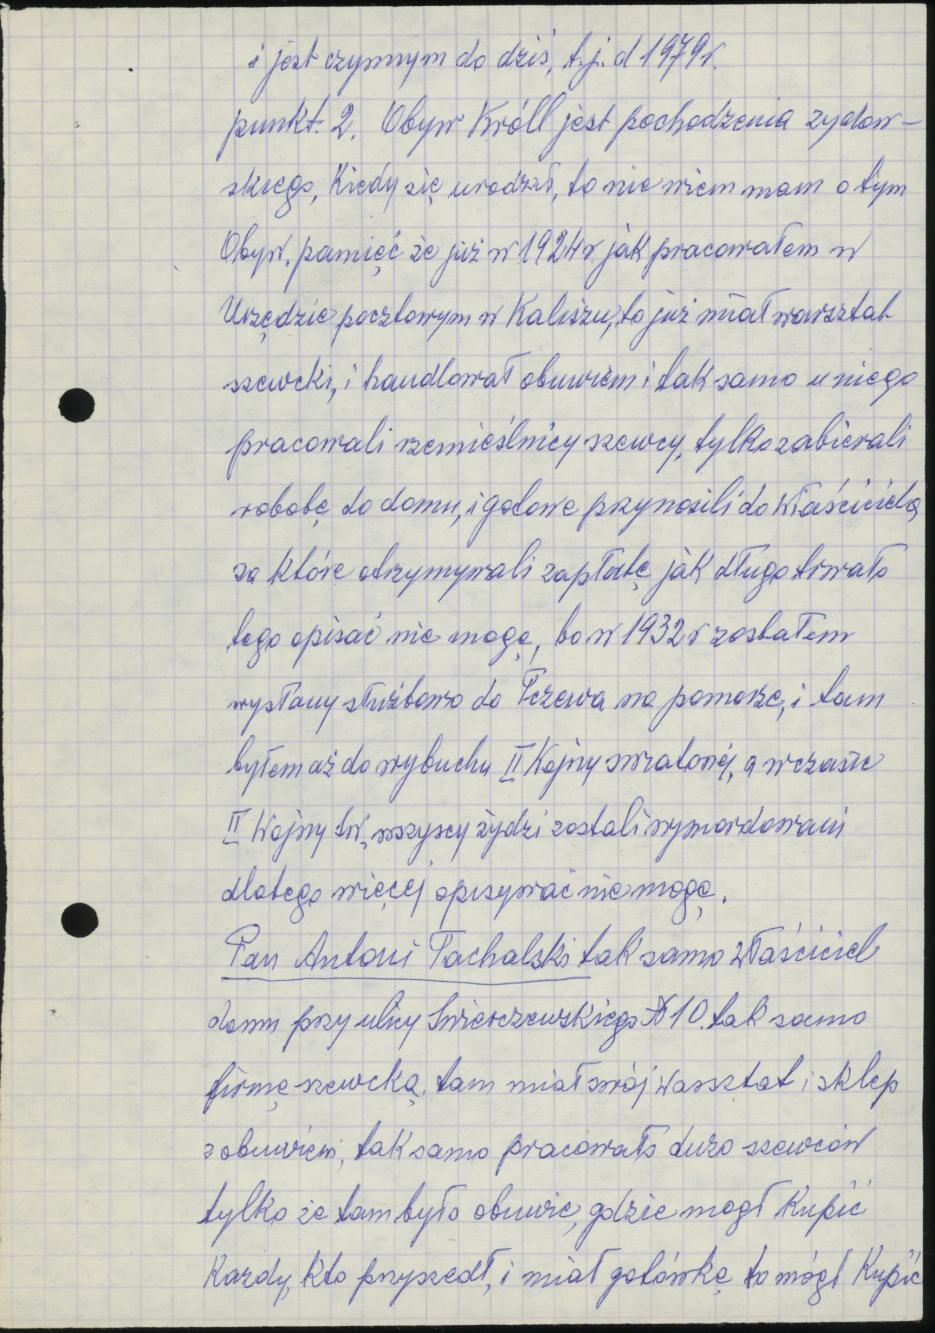 i jest czynnym do dziś, t.j. d 1979r.
punkt. 2. Obyw Króll jest pochodzenia zydow-
skiego, Kiedy się urodził, to nie wiem mam o tym
Obyw. pamięć że już w 1924r jak pracowałem w
Urzędzie pocztowym w Kaliszu, to już miał warsztat
szewcki, i handlował obuwiem i tak samo u niego
pracowali rzemieślnicy szewcy, tylko zabierali
robotę do domu, i gotowe przynosili do Właściciela,
za które otrzymywali zapłatę jak długo trwało
tego opisać nie mogę, bo w 1932r zostałem
wysłany służbowo do Tczewa na pomorze, i tam
byłem aż do wybuchu II Wojny swiatowej, a wczasie
II Wojny św, wszyscy żydzi zostali wymordowani
dlatego więcej opisywać nie mogę.
Pan Antoni Tachalski tak samo Właściciel
domu przy ulicy Swierczewskiego № 10. tak samo
firmę szewcką, tam miał swój Warsztat i sklep
z obuwiem, tak samo pracowało duzo szewców
tylko że tam było obuwie, gdzie mogł Kupić
Kazdy, kto przyszedł, i miał gotówkę to mógł Kupić